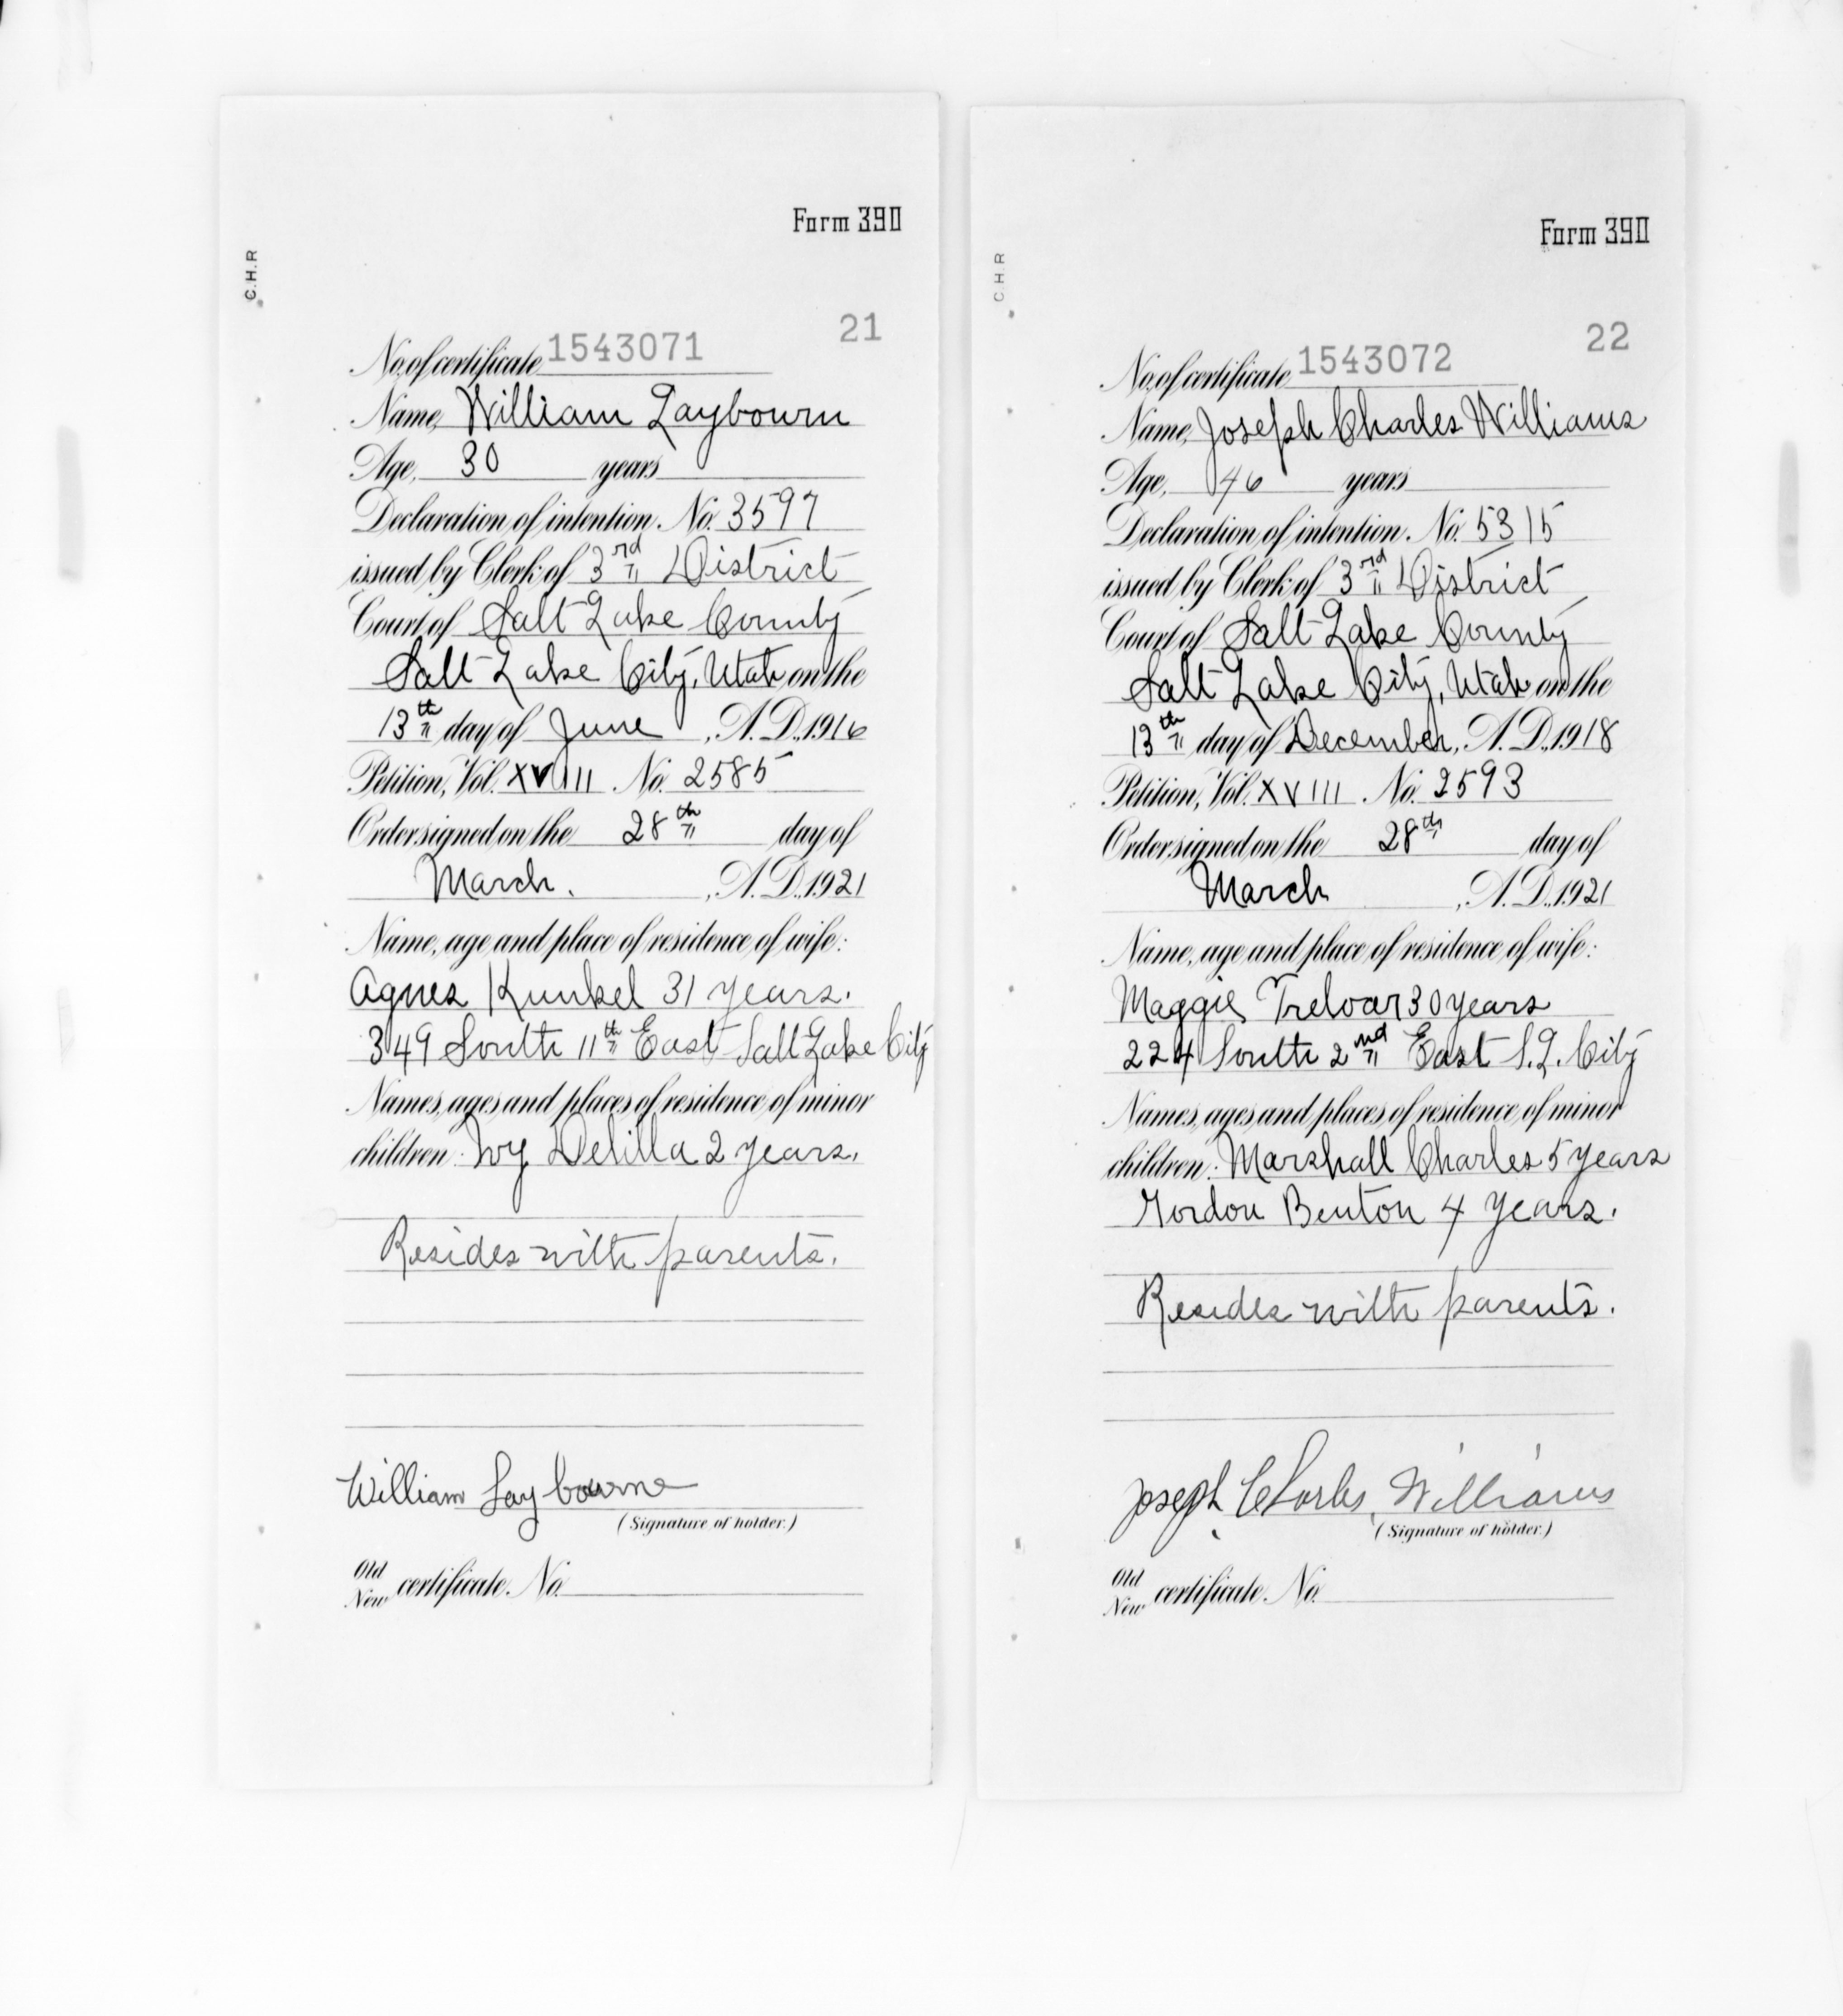 Form 390
C.H.R
21
No. of certificate 1543071
Name, William Laybourn
Age, 30 years
Declaration of intention. No. 3597
issued by Clerk of 3rd District
Court of Salt Lake County
Salt Lake City, Utah on the
13th day of June, A.D., 1916
Petition, Vol. XVIII No. 2585
Order signed on the 28th day of
March. , A.D., 1921
Name, age and place of residence of wife:
Agnes Kunkel 31 years.
349 South 11th East Salt Lake City
Names, ages and places of residence of minor
children: Ivy Delilla 2 years.
Resides with parents.
William Laybourne
(Signature of holder.)
Old
New certificate. No.
Form 390
C.H.R
22
No. of certificate 1543072
Name, Joseph Charles Williams
Age, 46 years
Declaration of intention. No. 5315
issued by Clerk of 3rd District
Court of Salt Lake County
Salt Lake City, Utah on the
13th day of December, A.D., 1918
Petition, Vol. XVIII No. 2593
Order signed on the 28th day of
March , A.D., 1921
Name, age and place of residence of wife:
Maggie Treloar 30 years
224 South 2nd East S.L. City
Names, ages and places of residence of minor
children: Marshall Charles 5 years
Gordon Benton 4 years.
Resides with parents.
Joseph Charles Williams
(Signature of holder.)
Old
New certificate. No.